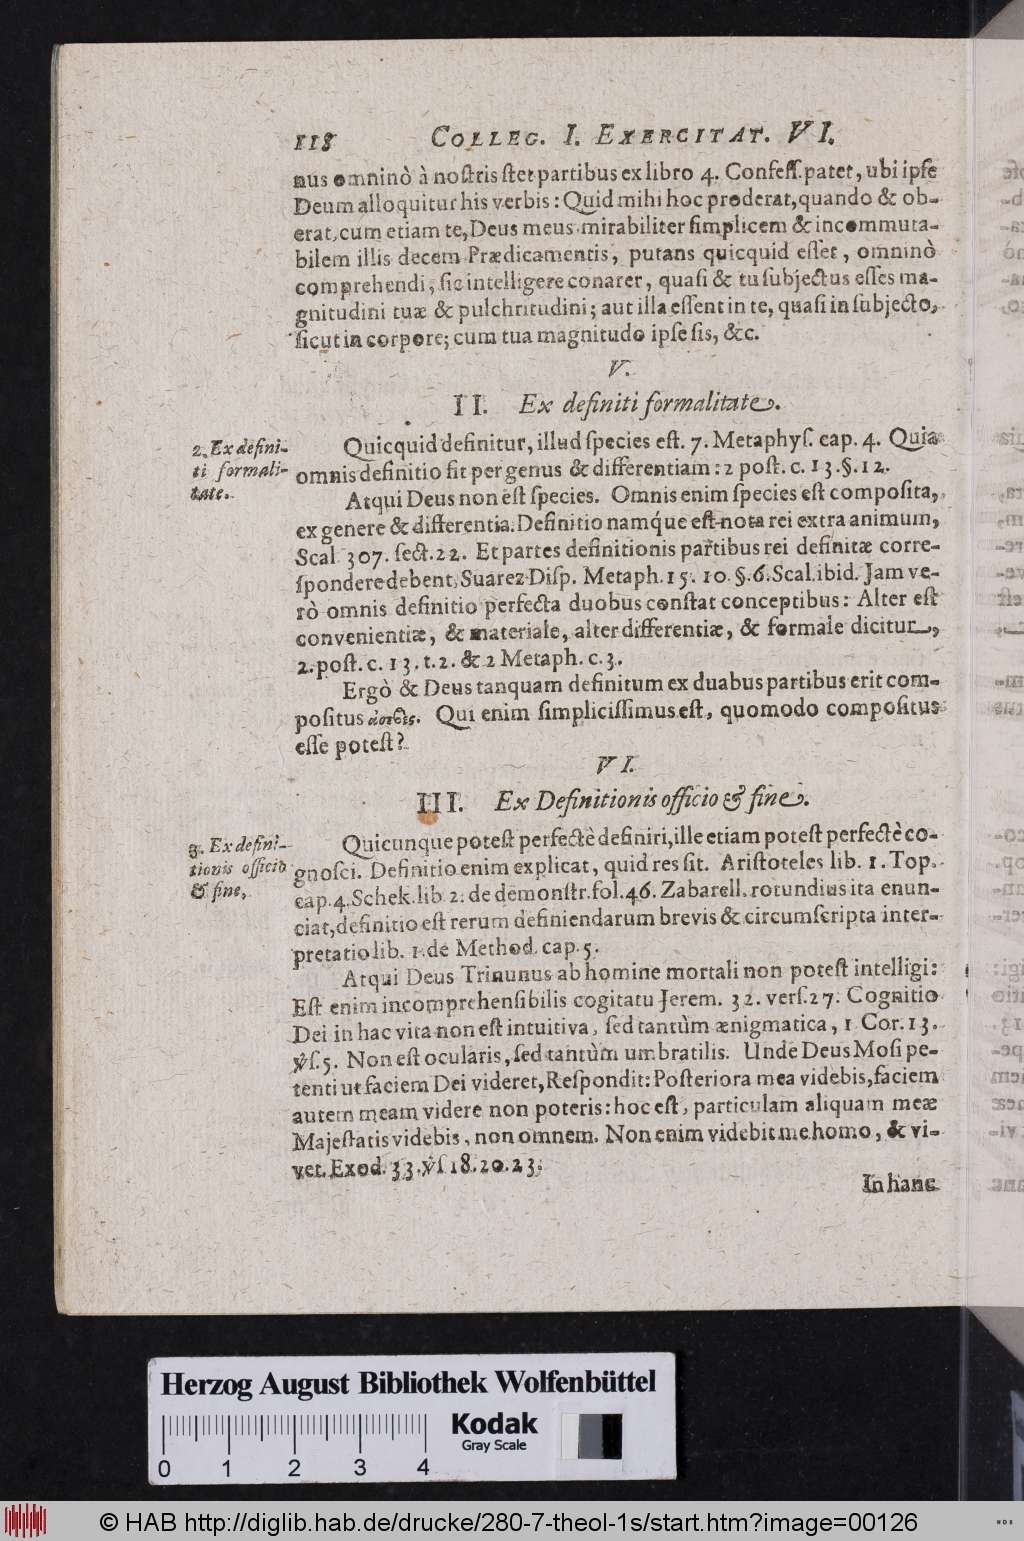 118 COLLEG. I. EXERCITAT. VI.
nus omninò à noſtris ſtet partibus ex libro 4. Confeſſ. patet, ubi ipſe
Deum alloquitur his verbis: Quid mihi hoc proderat, quando & ob-
erat, cum etiam te, Deus meus mirabiliter ſimplicem & incommuta-
bilem illis decem Prædicamentis, putans quicquid eſſet, omninò
comprehendi, ſic intelligere conarer, quaſi & tu ſubjectus eſſes ma-
gnitudini tuæ & pulchritudini; aut illa eſſent in te, quaſi in ſubjecto,
ſicut in corpore; cum tua magnitudo ipſe ſis, &c.
V.
II. Ex definiti formalitate.
2. Ex defini-
ti formali-
tate.
Quicquid definitur, illud ſpecies eſt. 7. Metaphyſ. cap. 4. Quia
omnis definitio fit per genus & differentiam: 2 poſt. c. 13. §. 12.
Atqui Deus non eſt ſpecies. Omnis enim ſpecies eſt compoſita,
ex genere & differentia. Definitio namq́ue eſt nota rei extra animum,
Scal. 307. ſect. 22. Et partes definitionis partibus rei definitæ corre-
ſpondere debent, Suarez Diſp. Metaph. 15. 10. §. 6. Scal. ibid. Jam ve-
rò omnis definitio perfecta duobus conſtat conceptibus: Alter eſt
convenientiæ, & materiale, alter differentiæ, & formale dicitur,
2. poſt. c. 13. t. 2. & 2 Metaph. c. 3.
Ergò & Deus tanquam definitum ex duabus partibus erit com-
poſitus Qui enim ſimpliciſſimus eſt, quomodo compoſitus
eſſe poteſt?
VI.
III. Ex Definitionis officio & fine.
3. Ex defini-
tionis officio
& fine,
Quicunque poteſt perfectè definiri, ille etiam poteſt perfectè co-
gnoſci. Definitio enim explicat, quid res ſit. Ariſtoteles lib. 1. Top.
cap. 4. Schek. lib. 2. de demonſtr. fol. 46. Zabarell. rotundius ita enun-
ciat, definitio eſt rerum definiendarum brevis & circumſcripta inter-
pretatio lib. 1. de Method. cap. 5.
Atqui Deus Trinunus ab homine mortali non poteſt intelligi:
Eſt enim incomprehenſibilis cogitatu Jerem. 32. verſ. 27. Cognitio
Dei in hac vita non eſt intuitiva, ſed tantùm ænigmatica, 1 Cor. 13.
ꝟſ. 5. Non eſt ocularis, ſed tantùm umbratilis. Unde Deus Moſi pe-
tenti ut faciem Dei videret, Reſpondit: Poſteriora mea videbis, faciem
autem meam videre non poteris: hoc eſt, particulam aliquam meæ
Majeſtatis videbis, non omnem. Non enim videbit me homo, & vi-
vet. Exod. 33. ꝟſ 18. 20. 23.
In hanc
Herzog August Bibliothek Wolfenbüttel
Kodak
Gray Scale
0 1 2 3 4
© HAB http://diglib.hab.de/drucke/280-7-theol-1s/start.htm?image=00126